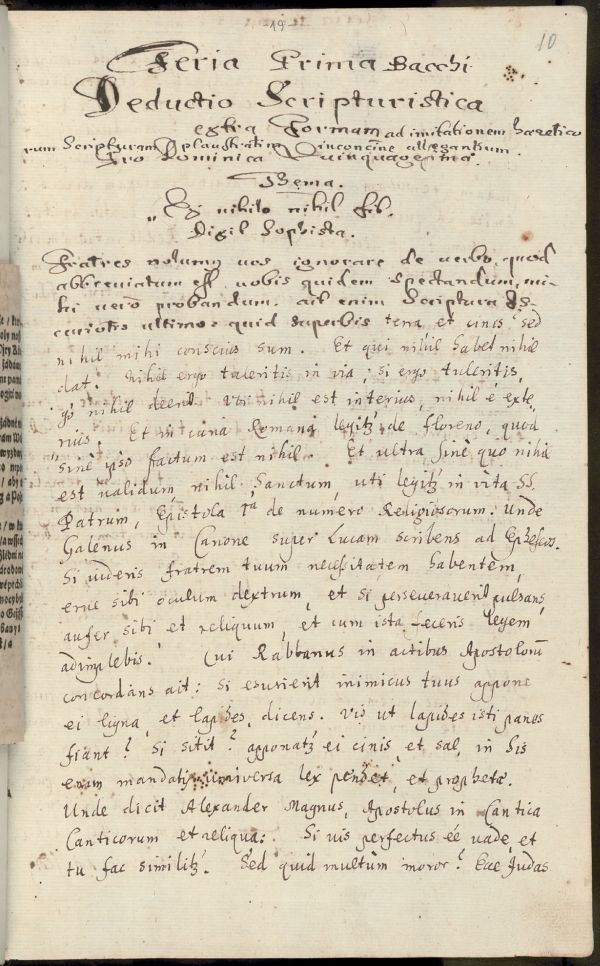 19
10
Feria Prima Bacchi
Deductio Scripturistica
Formam ad imitationem haeretico
rum Scripturam plaustratim inconcinne allegantium.
Pro Dominica Quinquagesima
Thema.
Ex nihilo nihil fit.
Digil Sophista.
Fratres nolumus vos ignorare de verbo, quod
abbreviatum est, vobis quidem spectandum, mi-
hi vero probandum. ait enim Scriptura Is-
cariotis ultimo: quid superbis terra et cinis? sed
nihil mihi conscius sum. Et qui nihil habet nihil
dat. Nihil ergo tuleritis in via, si ergo tuleritis,
nihil deerit. Ubi nihil est interius, nihil é exte
rius. Et in cana Romana legitz de floreno, quod
sine ipso factum est nihil. Et ultra, sine quo nihil
est validum, nihil Sanctum, uti legitz in vita SS.
Patrum, Epistola 1a de numero Religiosorum. Unde
Galenus in Canone super Lucam scribens ad Ephesios.
Si videris fratrem tuum necessitatem habentem,
erue sibi oculum dextrum, et si perseveraverit pulsans,
aufer sibi et reliquum, et cum ista feceris legem
adimplebis. Cui Rabbanus in actibus Apostolorum
concordans ait: Si esurierit inimicus tuus appone
ei ligna, et lapides, dicens. Vis ut lapides isti panes
fiant? Si sitit? apponatz ei cinis et sal, in his
enim mandatis universa lex pendet, et prophetae.
Unde dicit Alexander Magnus, Apostolus in Cantica
Canticorum et reliqua: Si vis perfectus eé vade, et
tu fac similitz. Sed quid multum moror? Ecce Judas